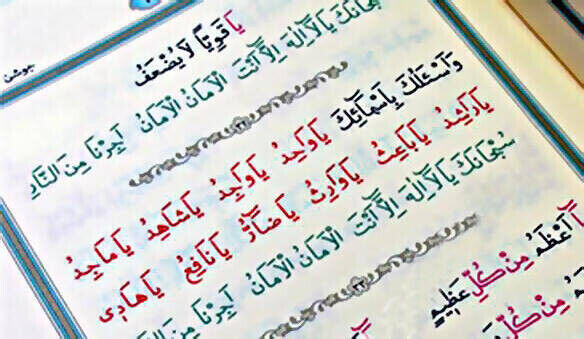 جوشن
يَا قَوِيًّا لَا يُضْعَفُ
سُبْحَانَكَ يَا لَا اِلٰهَ اِلَّا اَنْتَ الْاَمَانُ الْاَمَانُ اَجِرْنَا مِنَ النَّارِ
وَاَسْئَلُكَ بِاَسْمَائِكَ يَا وَاحِدُ يَا وَاجِدُ يَا شَاهِدُ يَا مَاجِدُ
يَا رَاشِدُ يَا بَاعِثُ يَا وَارِثُ يَا ضَارُّ يَا نَافِعُ يَا هَادِى
سُبْحَانَكَ يَا لَا اِلٰهَ اِلَّا اَنْتَ الْاَمَانُ الْاَمَانُ اَجِرْنَا مِنَ
اَعْظَمُ مِنْ كُلِّ عَظِيمٍ
مِنْ كُلِّ